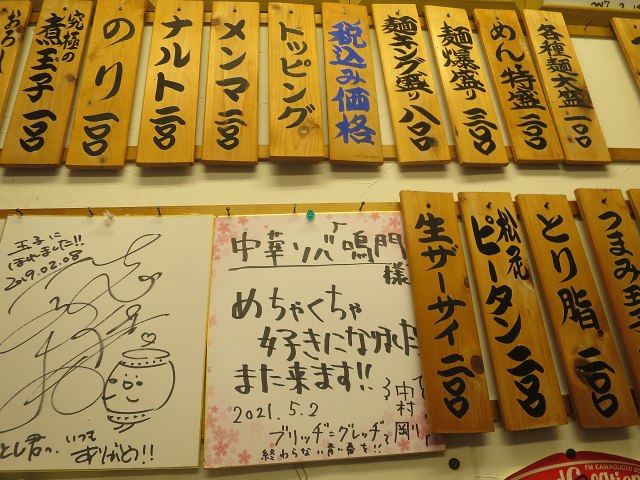 各種麺大盛 一〇〇
めん特盛 二〇〇
麺爆盛り 三〇〇
麺キング盛り 八〇〇
税込み価格
トッピング
メンマ 二〇〇
ナルト 二〇〇
のり 一〇〇
究極の
煮玉子 一〇〇
おろし
つまみ玉
とり脂 一〇〇
松花
ピータン 二〇〇
生ザーサイ 二〇〇
中華ソバ 鳴門
様
めちゃくちゃ
好きになりました
また来ます!!
2021.5.2
中村
剛
ブリッヂ=グレッヂ
終わらない青い春を!!
玉子に
ほれました!!
2019.02.08
とし君へ いつも
ありがとう!!
FM KAWAGUCHI